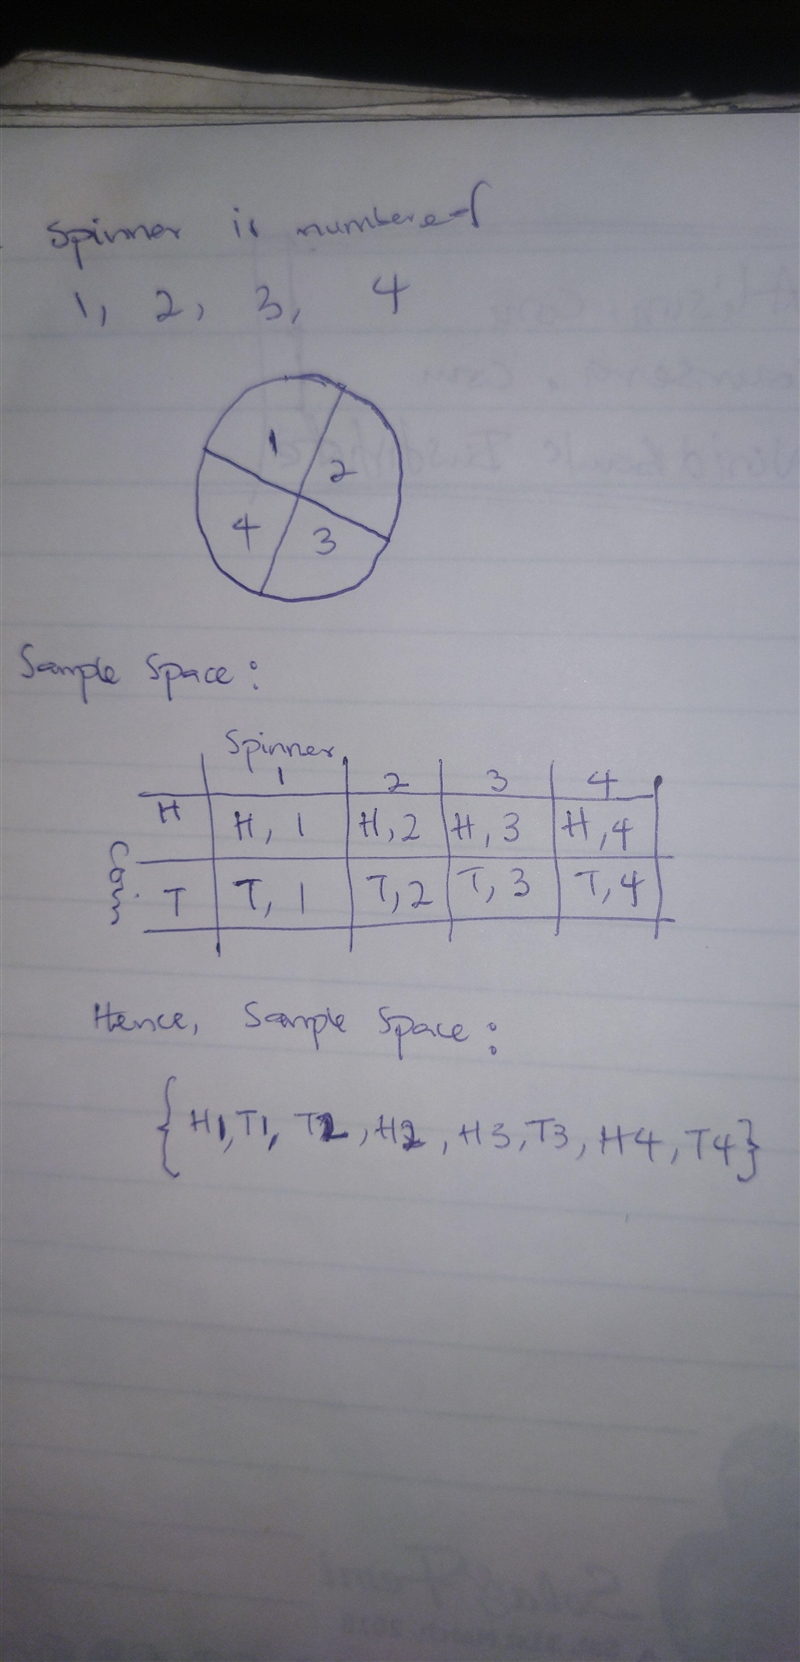 Spinner is numbered
1, 2, 3, 4
1
2
4
3
Sample Space:
Spinner
1 2 3 4
H H, 1 H,2 H,3 H,4
Coin
T T, 1 T,2 T,3 T,4
Hence, Sample Space:
{H1,T1, T2, H2, H3,T3, H4, T4}